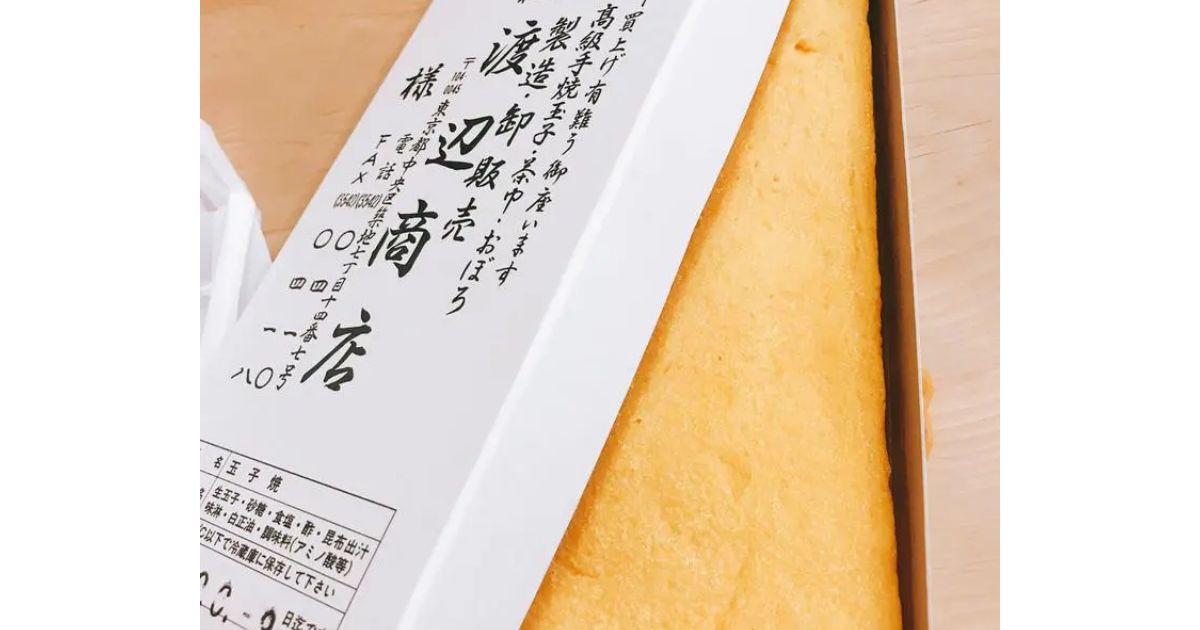 買上げ有難う御座います
高級手焼玉子・茶巾・おぼろ
製造・卸販売
渡辺商店
〒104 0045 東京都中央区築地七丁目十四番七号
電話(3542)〇四一〇
FAX(3542)〇四一八
様
名 玉子焼
生玉子・砂糖・食塩・酢・昆布出汁
味淋・白正油・調味料(アミノ酸等)
℃以下で冷蔵庫に保存して下さい
日迄で